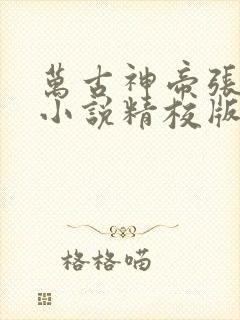 萬古神帝張
小說精校版
格格喵